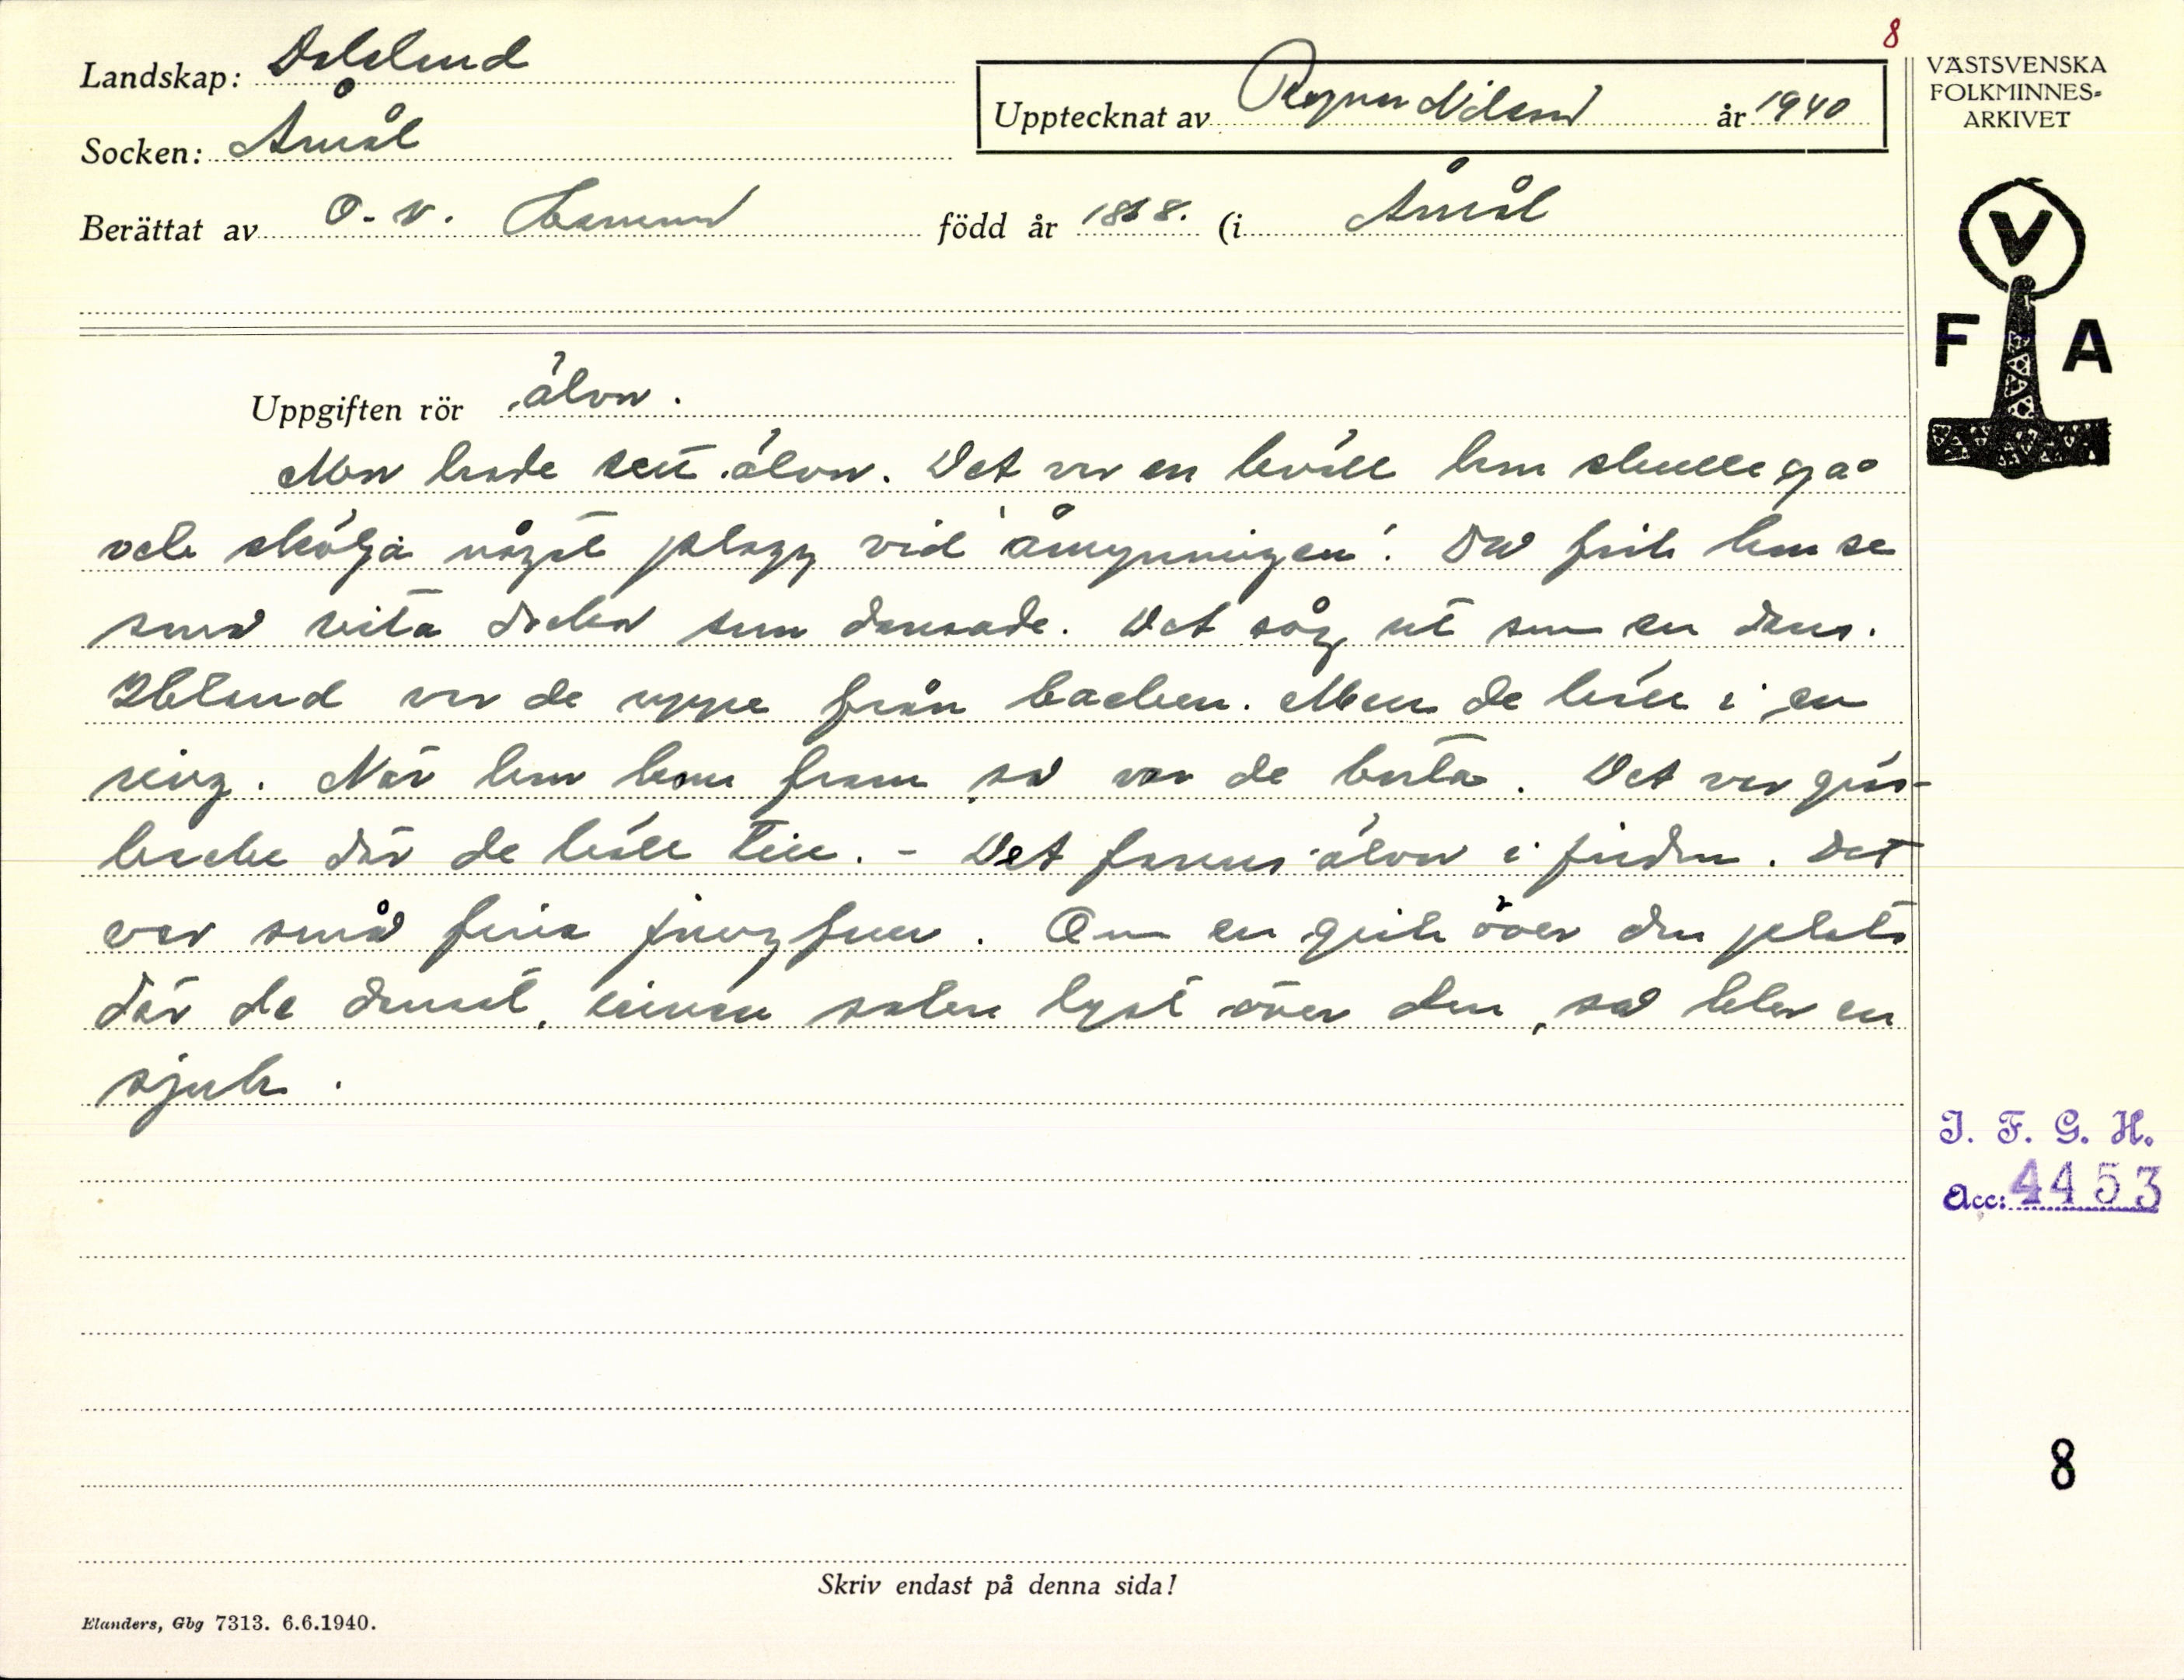 8
Landskap: Dalsland
Socken: Åmål
Upptecknat av Ragnar Nilsson år 1940
Berättat av O. V. född år 1868. (i Åmål
VÄSTSVENSKA
FOLKMINNES-
ARKIVET
V
F A
Uppgiften rör älvor.
Mor hade sett älvor. Det var en kväll hon skulle gå
och skölja något plagg vid åmynningen. Då fick hon se
små vita dockor som dansade. Det såg ut som en dans.
Ibland var de uppe från backen. Men de höll i en
ring. När hon kom fram så var de borta. Det var gräs-
backe där de höll till. - Det fanns älvor i jorden. Det
var små fina jungfrur. Om en gick över den plats
där de dansat, innan solen lyst över den, så blev en
sjuk.
I. F. G. H.
Acc: 4453
8
Skriv endast på denna sida!
Elanders, Gbg 7313. 6.6.1940.